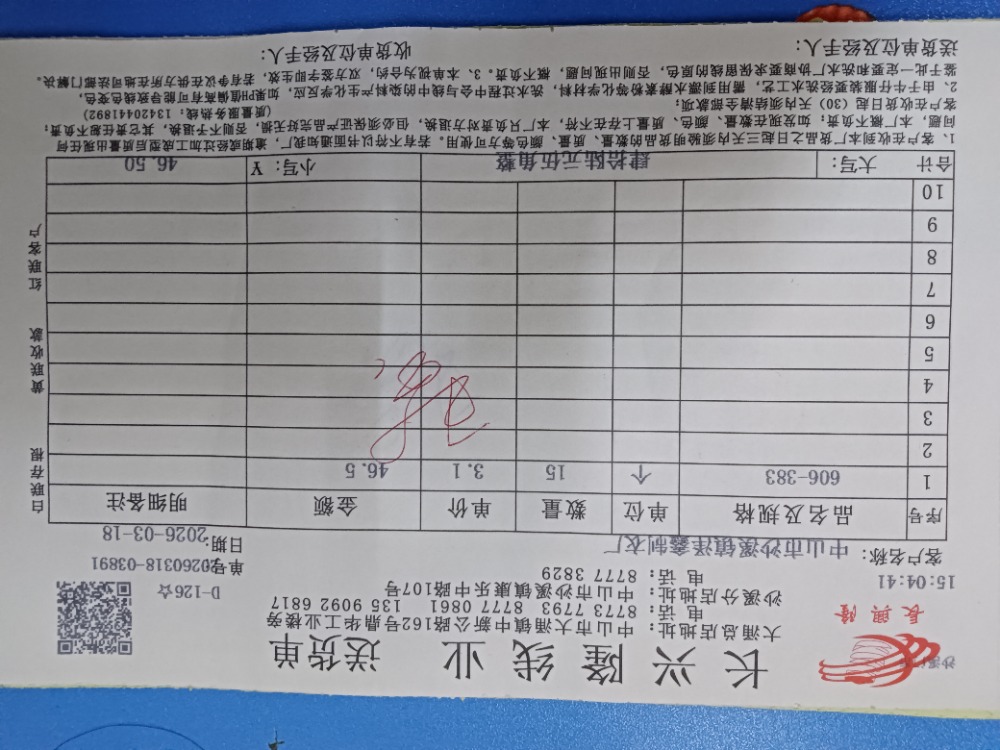 长兴隆线业 送货单
沙溪
長興隆
15:04:41
大涌总店地址：中山市大涌镇中新公路162号鼎华工业楼旁
电话：8773 7793 8777 0861 135 9092 6817
沙溪分店地址：中山市沙溪镇康乐中路107号
电话：8777 3829
D-126☆
单号:20260318-03891
客户名称：中山市沙溪镇泽鑫制衣厂
日期:2026-03-18
序号 品名及规格 单位 数量 单价 金额 明细备注
1 606-383 个 15 3.1 46.5
2
3
4
5
6
7
8
9
10
合计 大写： 肆拾陆元伍角整 小写：¥ 46.50
白联存根 黄联收款 红联客户
1、客户在收到本厂货品之日起三天内须验明货品的数量、质量、颜色等方可使用。若有不符以书面通知我厂，逾期或经过加工成型后质量出现任何
问题，本厂概不负责；如发现在数量、颜色、质量上存在不符，本厂只负责对方退换，但必须保证产品完好无损，否则不予退换，其它责任概不负责；
客户在收货日起（30）天内须结清全部款项； （质量服务热线：13420441892）
2、由于牛仔服装要经洗水工艺，需用到漂水酵素粉等化学材料，洗水过程中会与线中的染料产生化学反应，如果PH值偏高有可能导致线色变色，
鉴于此一定要和洗水厂协商要求保留线的原色，否则出现问题，概不负责。3、本单视为合约，双方签字即生效，若有争议在供方所在地司法部门解决。
送货单位及经手人： 收货单位及经手人：